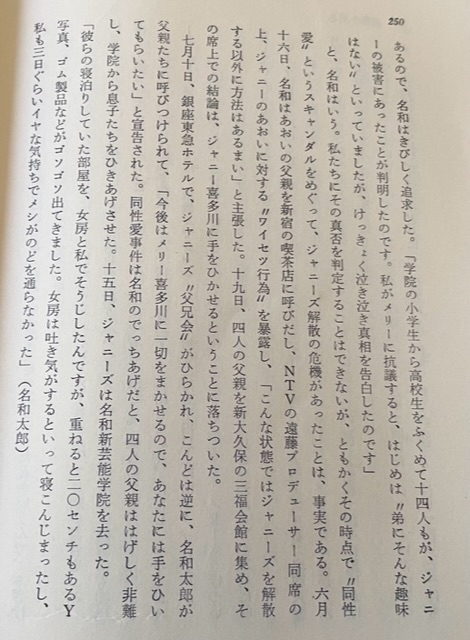 250
あるので、名和はきびしく追求した。「学院の小学生から高校生をふくめて十四人もが、ジャニ
ーの被害にあったことが判明したのです。私がメリーに抗議すると、はじめは〝弟にそんな趣味
はない〟といっていましたが、けっきょく泣き泣き真相を告白したのです」
と、名和はいう。私たちにその真否を判定することはできないが、ともかくその時点で〝同性
愛〟というスキャンダルをめぐって、ジャニーズ解散の危機があったことは、事実である。六月
十六日、名和はあおいの父親を新宿の喫茶店に呼びだし、NTVの遠藤プロデューサー同席の
上、ジャニーのあおいに対する〝ワイセツ行為〟を暴露し、「こんな状態ではジャニーズを解散
する以外に方法はあるまい」と主張した。十九日、四人の父親を新大久保の三福会館に集め、そ
の席上での結論は、ジャニー喜多川に手をひかせるということに落ちついた。
七月十日、銀座東急ホテルで、ジャニーズ〝父兄会〟がひらかれ、こんどは逆に、名和太郎が
父親たちに呼びつけられて、「今後はメリー喜多川に一切をまかせるので、あなたには手をひい
てもらいたい」と宣告された。同性愛事件は名和のでっちあげだと、四人の父親ははげしく非難
し、学院から息子たちをひきあげさせた。十五日、ジャニーズは名和新芸能学院を去った。
「彼らの寝泊りしていた部屋を、女房と私でそうじしたんですが、重ねると二〇センチもあるY
写真、ゴム製品などがゴソゴソ出てきました。女房は吐き気がするといって寝こんじまったし、
私も三日ぐらいイヤな気持ちでメシがのどを通らなかった」（名和太郎）